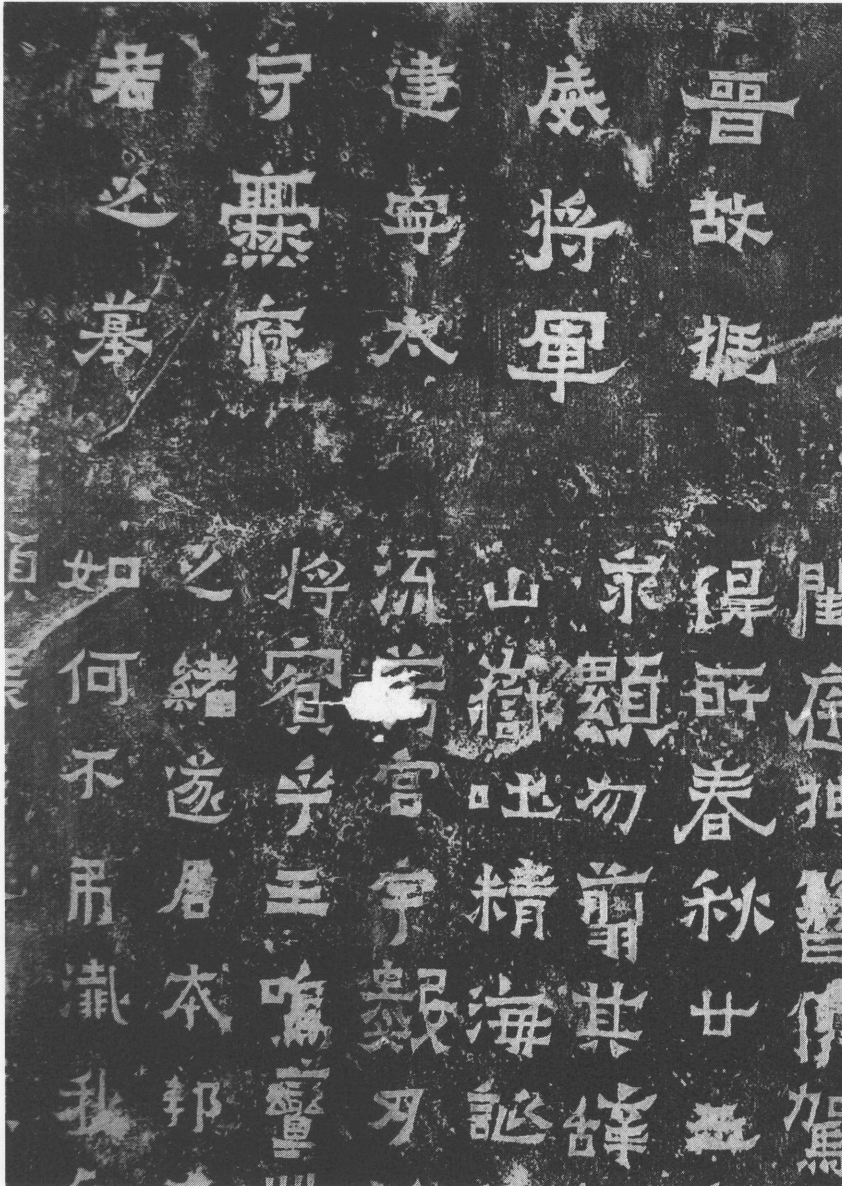 晉故振
威將軍
建寧太
守爨府
君之墓
閨庭抽簪俟駕
得所春秋廿五
永顯勿翦其辭
山嶽吐精海誕
流芳宮宇數仞
將賓乎王鳴鸞
之緒遂居本邦
如何不吊殲我